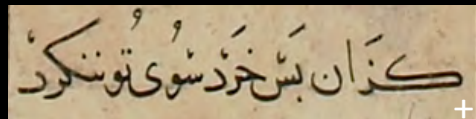 کزان بس خرد سوی تو ننکرد